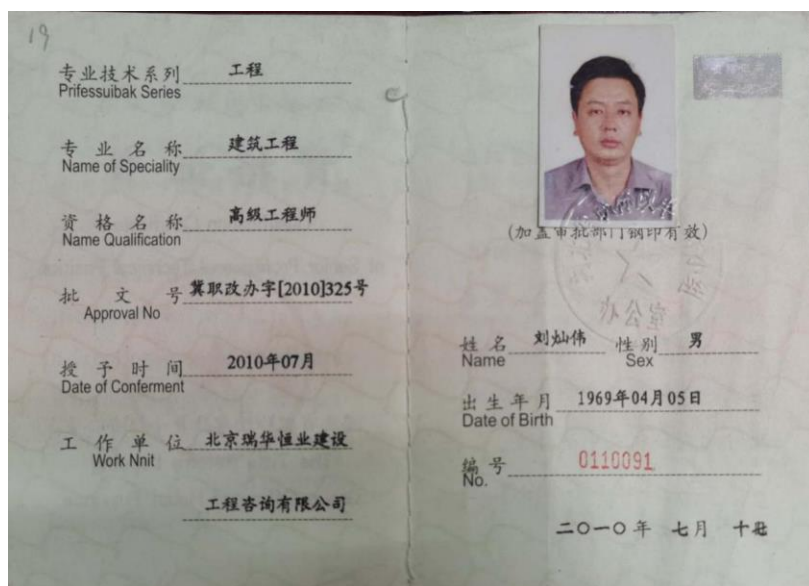 19
专业技术系列 工程
Prifessuibak Series
专业名称 建筑工程
Name of Speciality
资格名称 高级工程师
Name Qualification
批文号 冀职改办字[2010]325号
Approval No
授予时间 2010年07月
Date of Conferment
工作单位 北京瑞华恒业建设
Work Nnit
工程咨询有限公司
(加盖审批部门钢印有效)
姓名 刘灿伟 性别 男
Name Sex
出生年月 1969年04月05日
Date of Birth
编号 0110091
No.
二〇一〇年 七月